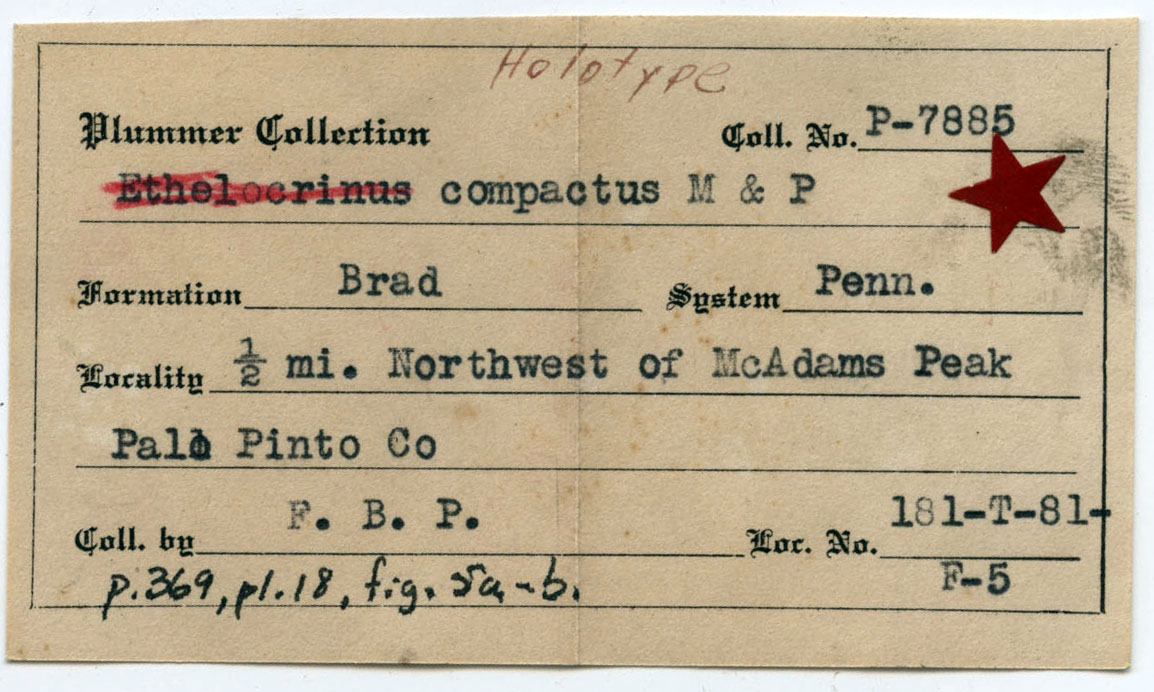 Holotype
Plummer Collection Coll. No. P-7885
Ethelocrinus compactus M & P
Formation Brad System Penn.
Locality ½ mi. Northwest of McAdams Peak
Palo Pinto Co
Coll. by F. B. P. Loc. No. 181-T-81-
F-5
p.369, pl.18, fig. 5a-b.